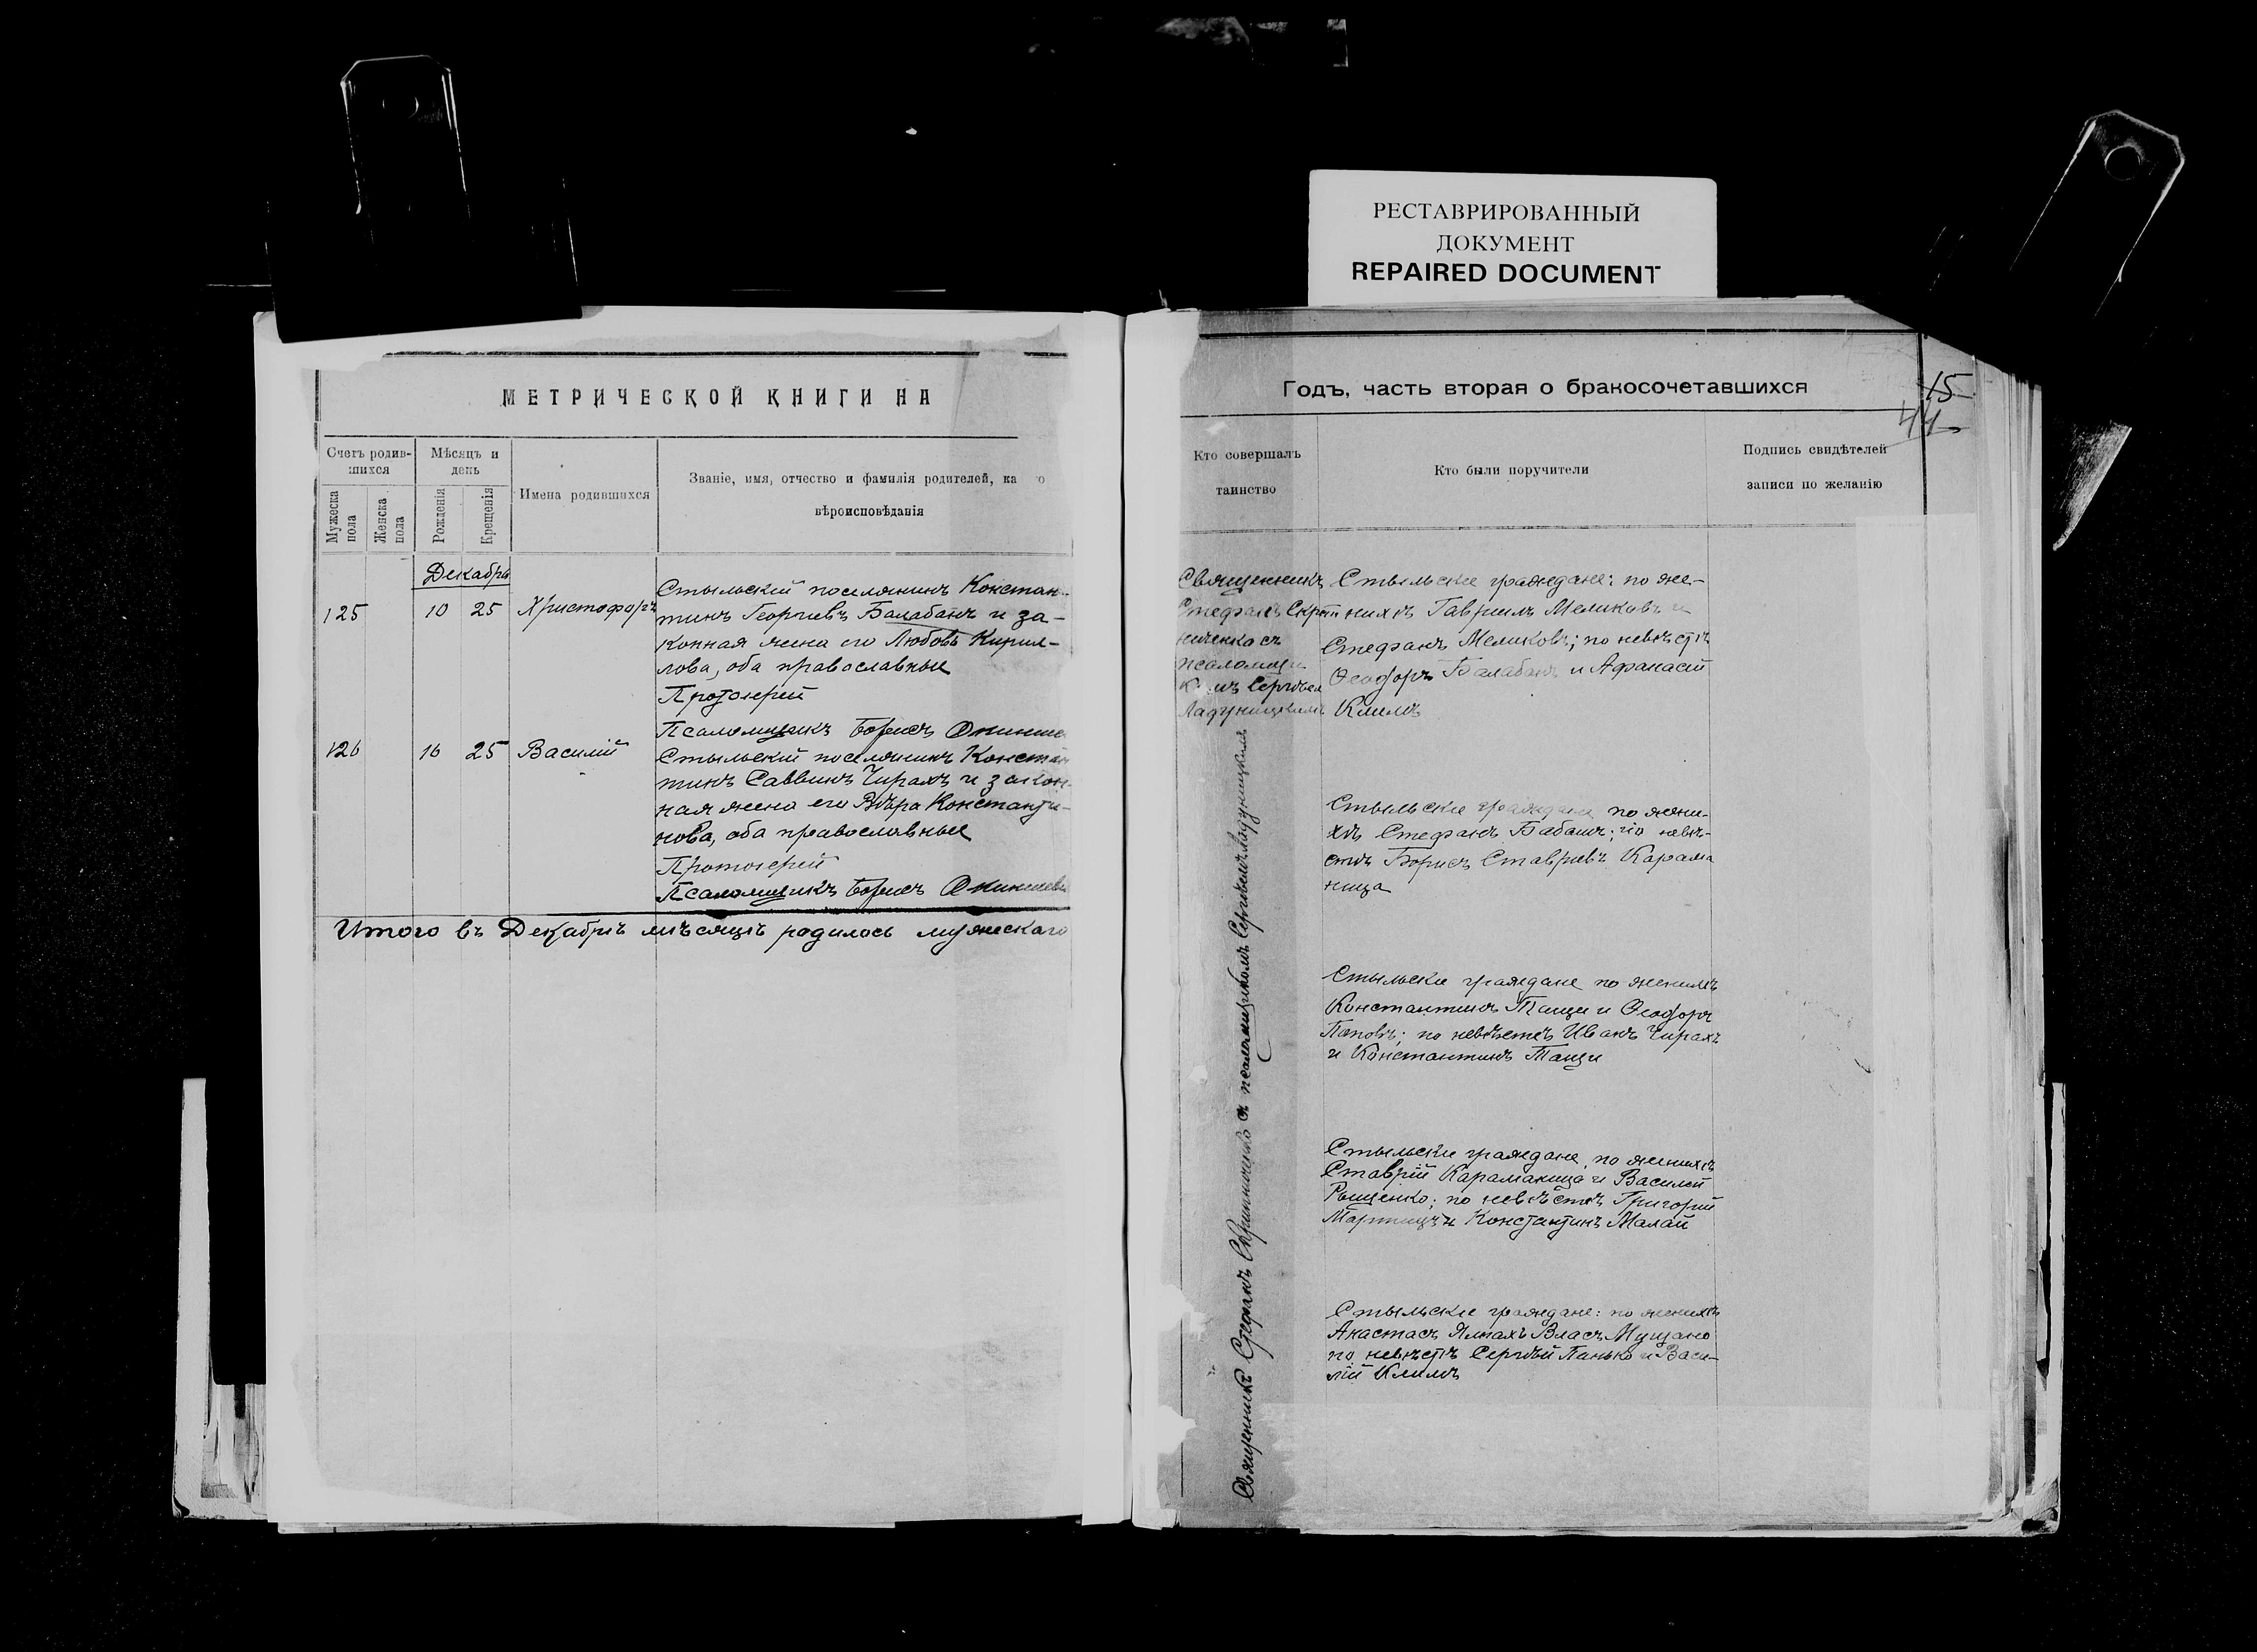 РЕСТАВРИРОВАННЫЙ
ДОКУМЕНТ
REPAIRED DOCUMENT
МЕТРИЧЕСКОЙ КНИГИ НА
Счетъ родив-
шихся
Мѣсяцъ и
день
Имена родившихся
Званіе, имя, отчество и фамилія родителей, ка о
вѣроисповѣданія
Мужеска
пола
Женска
пола
Рожденія
Крещенія
Декабрь
125 10 25 Христофоръ
Стыльскій поселянинъ Констан-
тинъ Георгіевъ Балабанъ и за-
конная жена его Любовь Кирил-
лова, оба православные
Протоіерей
Псаломщикъ Борисъ
126 16 25 Василій
Стыльскій поселянинъ Констан
тинъ Саввинъ Чирахъ и закон-
ная жена его Вѣра Константи-
нова, оба православные
Протоіерей
Псаломщикъ Борисъ
Итого въ Декабрѣ мѣсяцѣ родилось мужескаго
Годъ, часть вторая о бракосочетавшихся
15
44
Кто совершалъ
таинство
Кто были поручители
Подпись свидѣтелей
записи по желанію
Священникъ
Стефанъ Скрип
ниченко съ
псаломщи
Сергѣем
Ладуницкимъ
Стыльскіе граждане: по же-
нихѣ Гавріилъ Меликовъ и
Стефанъ Меликовъ; по невѣстѣ
Ѳеодоръ Балабанъ и Афанасій
Климъ
Стыльскіе граждане по жени-
хѣ Стефанъ Бабашъ; по невѣ-
стѣ Борисъ Ставріевъ Карама
ница
Стыльскіе граждане по женихѣ
Константинъ Тащи и Ѳеодоръ
Поповъ; по невѣстѣ Иванъ Чирахъ
и Константинъ Тащи
Стыльскіе граждане, по женихѣ
Ставрій Караманица и Василій
Рощенко; по невѣстѣ Григорій
и Константинъ Малай
Стыльскіе граждане: по женихѣ
Анастасъ Ялпахъ Власъ Мущано
по невѣстѣ Сергѣй Панько и Васи-
лій Климъ
Священникъ Стефанъ Скрипниченко съ псаломщикомъ Сергѣемъ Ладуницкимъ